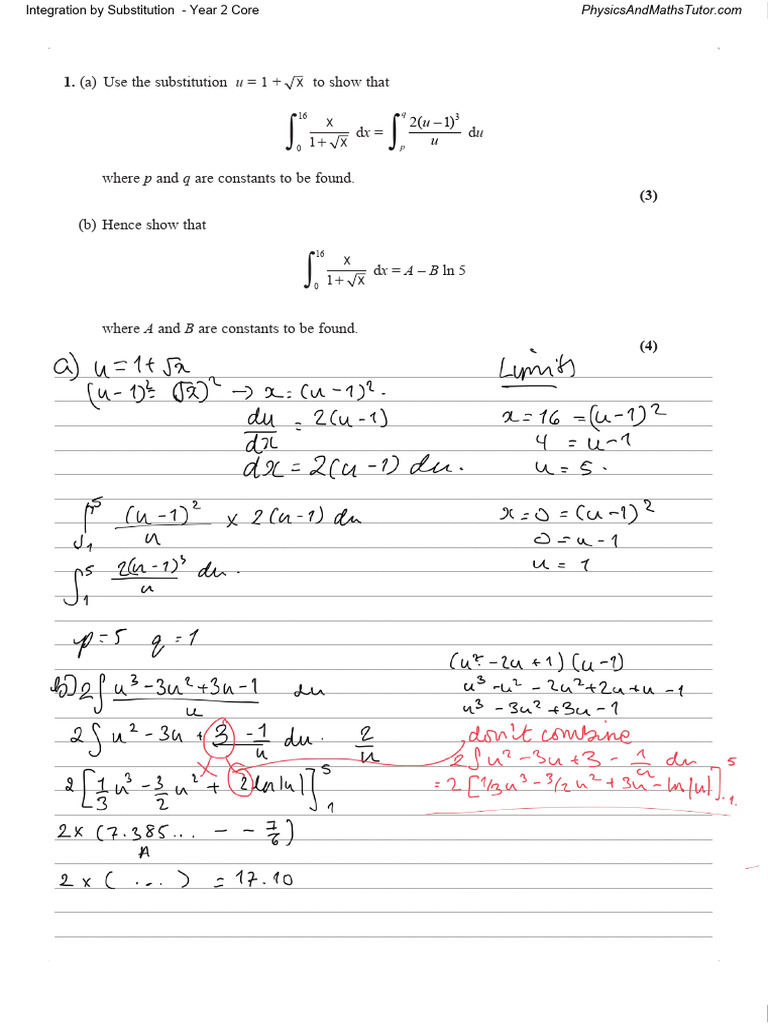 Integration by Substitution - Year 2 Core PhysicsAndMathsTutor.com
1. (a) Use the substitution u = 1 + √x to show that
∫₀¹⁶ x/(1+√x) dx = ∫ₚ^q 2(u−1)³/u du
where p and q are constants to be found.
(3)
(b) Hence show that
∫₀¹⁶ x/(1+√x) dx = A – B ln 5
where A and B are constants to be found.
(4)
a) u = 1 + √x
(u-1)² = (√x)² → x = (u-1)².
du/dx = 2(u-1)
dx = 2(u-1) du.
Limits
x = 16 = (u-1)²
4 = u-1
u = 5.
x = 0 = (u-1)²
0 = u-1
u = 1
∫₁⁵ (u-1)²/u × 2(u-1) du
∫₁⁵ 2(u-1)³/u du.
p = 5 q = 1
b) 2∫ u³-3u²+3u-1/u du
(u²-2u+1)(u-1)
u³-u²-2u²+2u+u-1
u³-3u²+3u-1
2∫ u²-3u+3-1/u du. 2/u
2[1/3 u³ - 3/2 u² + 2ln|u|]₁⁵
don't combine
2∫u²-3u+3-1/u du
= 2[1/3u³-3/2u²+3u-ln|u|]₁⁵.
2×(7.385... - -7/6)
A
2×(...) = 17.10